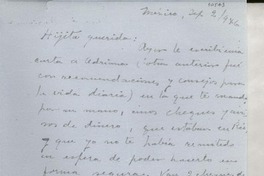 México, Sep. 2/946
Hijita querida: Ayer te escribí una
carta a (otra anterior fué
con recomendaciones y consejos para
la vida diaria) en la que te mandé
por su mano, unos cheques y
sos de dinero, que estaban en
y que yo no te había remitido
en espera de poder hacerlo en
forma segura. Van 2 cheques de